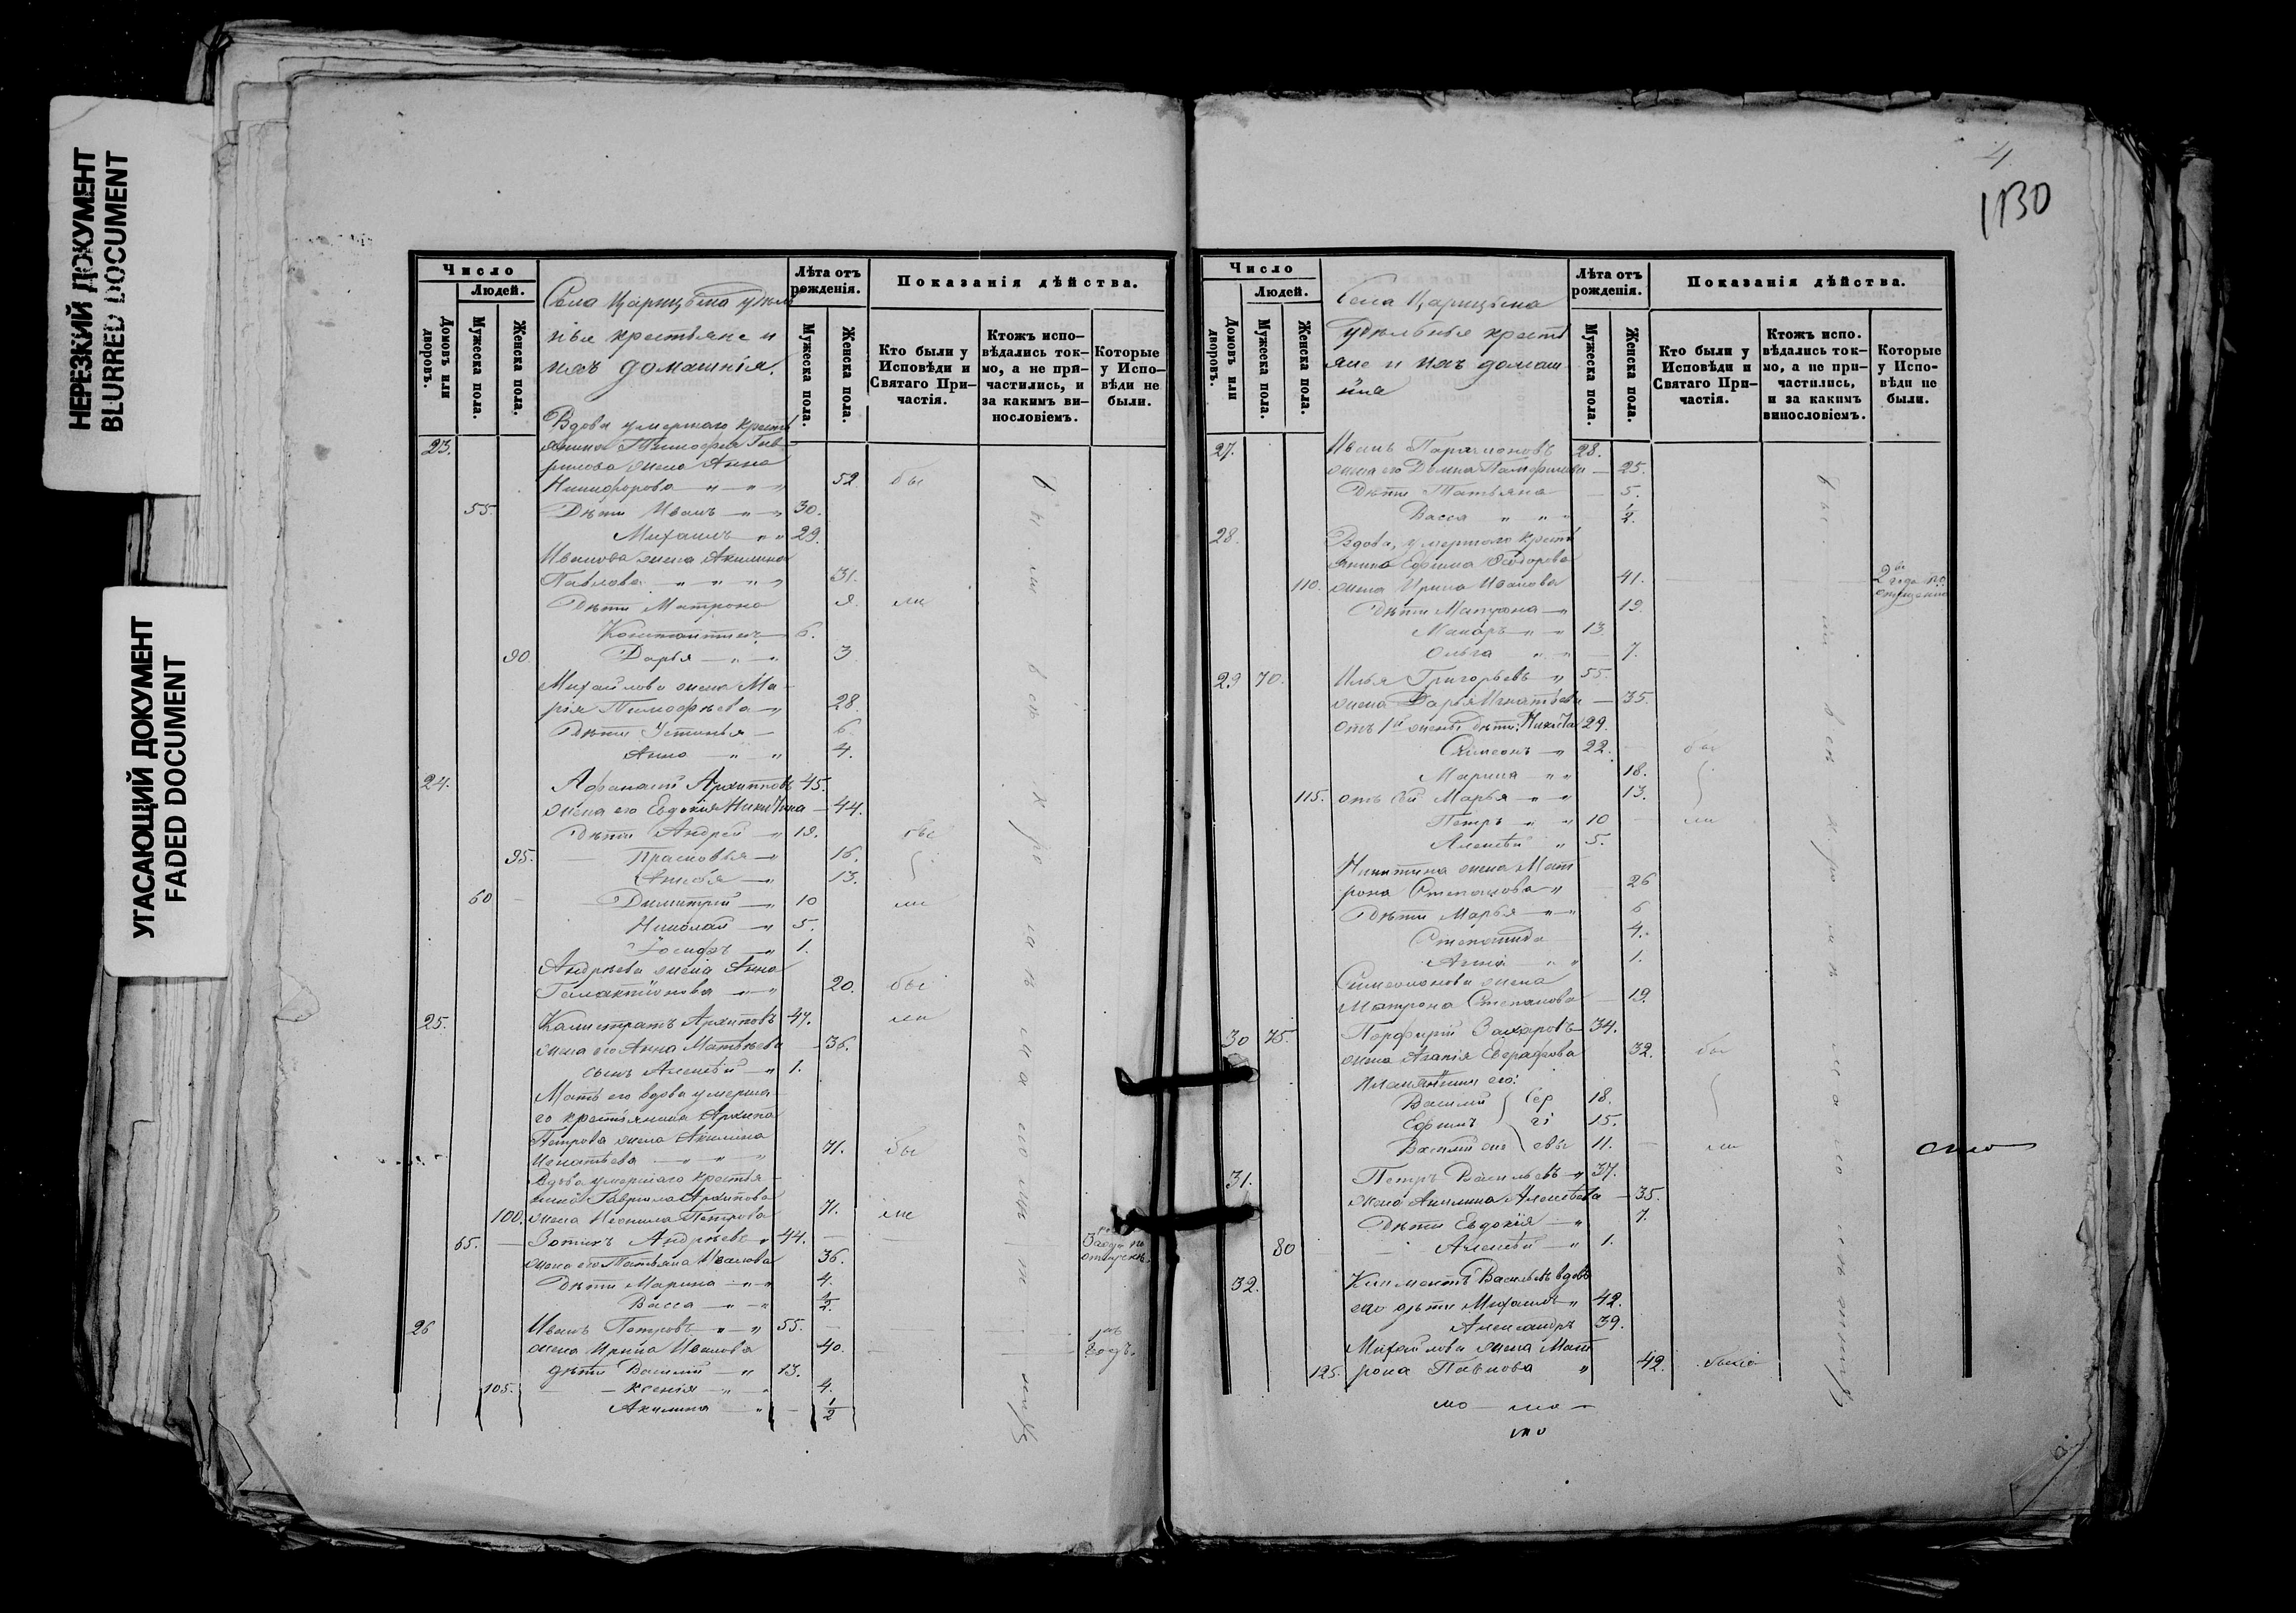 НЕРЕЗКИЙ ДОКУМЕНТ
BLURRED DOCUMENT
УГАСАЮЩИЙ ДОКУМЕНТ
FADED DOCUMENT
Число
Людей.
Домовъ или дворовъ.
Мужеска пола.
Женска пола.
Села Царицына удѣль
ныя крестьяне и
ихъ домашнія.
Лѣта отъ рожденія.
Мужеска пола.
Женска пола.
Показанія дѣйства.
Кто были у Исповѣди и Святаго При-
частія.
Ктожъ испо-
вѣдались ток-
мо, а не при-
частились, и
за какимъ ви-
нословіемъ.
Которые
у Испо-
вѣди не
были.
Вдова умершаго кресть
23. янина Тимофея Гав-
рилова жена Анна
Никифорова 52. бы
55. Дѣти Иванъ 30.
Михаилъ 29.
Иванова жена Акилина
Павлова 31.
Дѣти Матрона ли
Константинъ 6.
90. Дарья 3
Михайлова жена Ма-
рія Тимофѣева 28.
Дѣти Устинья 6.
Анна 4.
24. Афанасій Архиповъ 45.
жена его Евдокія Никитина 44.
Дѣти Андрей 19. бы
95. Прасковья 16.
13.
60 Димитрій 10 ли
Николай 5.
Іосифъ 1.
Андрѣева жена Анна
Галактіонова 20. бы
25. Калистратъ Архиповъ 47. ли
жена его Анна Матвѣева 36.
сынъ Алексѣй 1.
Мать его вдова умерша-
го крестьянина Архипа
Петрова жена Акилина
Игнатьева 71. бы
Вдова умершаго крестья-
нина Гаврила Архипова
100. жена Неонила Петрова 71. ли
65. Зотикъ Андрѣевъ 44.
жена его Татьяна Иванова 36.
Дѣти Марина 4.
Васса 1/2.
26 Иванъ Петровъ 55.
жена Ирина Иванова 40. годъ.
дѣти Василій 13.
105. Ксенія 4.
Акилина 1/2
4
1130
Число
Людей.
Домовъ или дворовъ.
Мужеска пола.
Женска пола.
Села Царицына
Удѣльныя кресть
яне и ихъ домаш
нія
Лѣта отъ рожденія.
Мужеска пола.
Женска пола.
Показанія дѣйства.
Кто были у
Исповѣди и
Святаго При-
частія.
Ктожъ испо-
вѣдались ток-
мо, а не при-
частились,
и за какимъ
винословіемъ.
Которые
у Испо-
вѣди не
были.
27. Иванъ Парамоновъ 28.
жена его Домна Памфилова 25.
Дѣти Татьяна 5.
Васса 1/2.
28. Вдова, умершаго кресть
янина Ефима Ѳедорова
110. жена Ирина Иванова 41.
2 года по
опущенію
Дѣти Матрона 19.
Макаръ 13
Ольга 7.
29 70. Илья Григорьевъ 55.
жена Дарья Игнатьева 35.
отъ 1й жены дѣти: Никита 29.
Симеонъ 22. бы
Марина 18.
115. отъ сей Марья 13.
Петръ 10 ли
Алексѣй 5.
Никитина жена Мат
рона Степанова 26
Дѣти Марья 6
Степанида 4.
Анна 1.
Симеонова жена
Матрона Степанова 19.
30 75. Порфирій Захаровъ 34.
жена Агапія Евграфова 32. бы
племянники его:
Василій Сер 18.
Ефимъ гі 15.
Василій же евы 11. ли
31. Петръ Васильевъ 37.
жена Акилина Алексѣева 35.
Дѣти Евдокія 7.
80 Алексѣй 1.
32. Климентъ Васильевъ вдовъ
его дѣти Михаилъ 42.
Александръ 39.
Михайлова жена Мат
125. рона Павлова 42. была